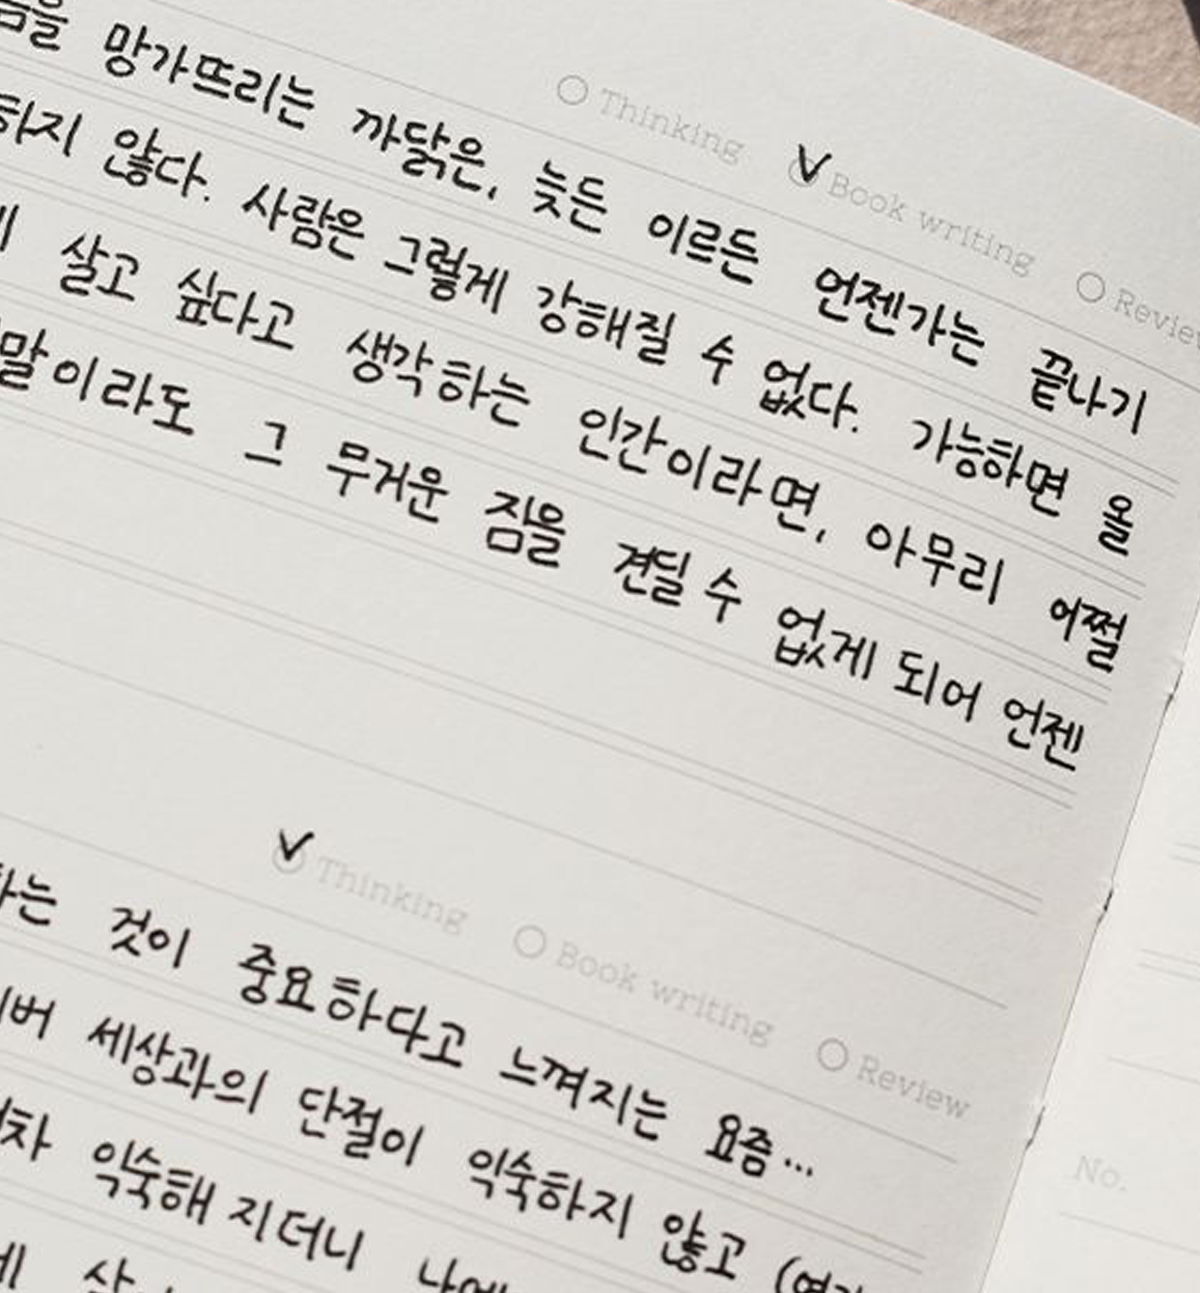 Thinking Book writing Review
망가뜨리는 까닭은, 늦든 이르든 언젠가는 끝나기
하지 않다. 사람은 그렇게 강해질 수 없다. 가능하면 올
살고 싶다고 생각하는 인간이라면, 아무리 어쩔
말이라도 그 무거운 짐을 견딜 수 없게 되어 언젠
Thinking Book writing Review
하는 것이 중요하다고 느껴지는 요즘...
세상과의 단절이 익숙하지 않고
익숙해지더니
No.